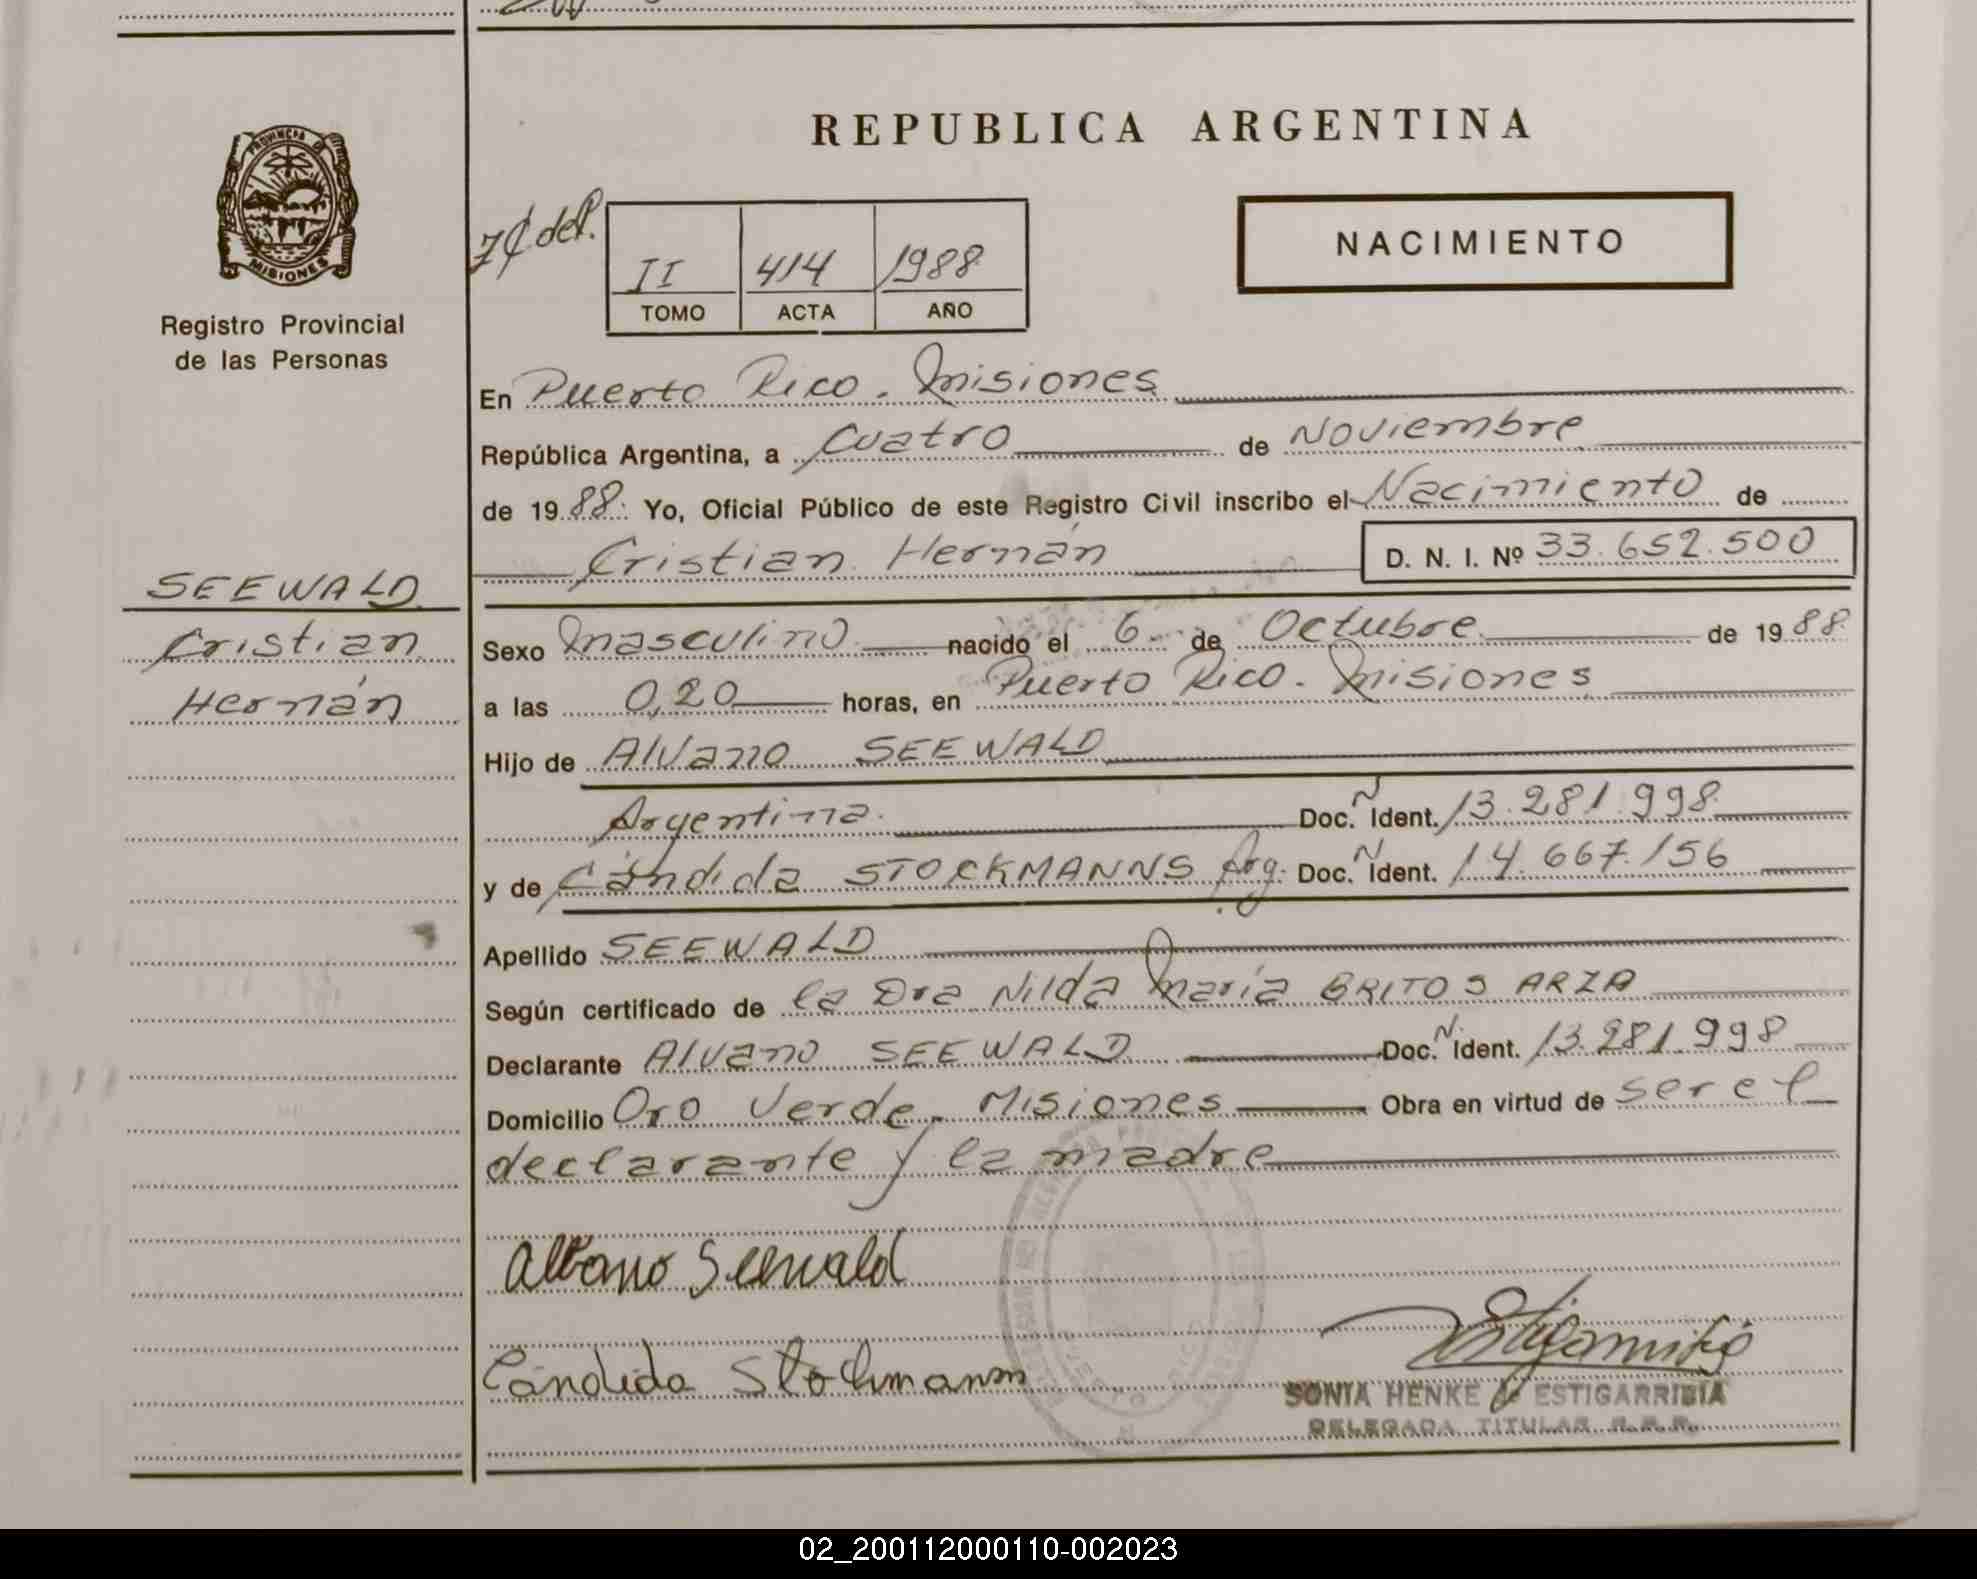 PROVINCIA DE
MISIONES
Registro Provincial
de las Personas
SEEWALD
Cristian
Hernán
REPUBLICA ARGENTINA
II 414 1988
TOMO ACTA AÑO
NACIMIENTO
En Puerto Rico. Misiones
República Argentina, a Cuatro de Noviembre
de 1988. Yo, Oficial Público de este Registro Civil inscribo el Nacimiento de
Cristian Hernán D. N. I. Nº 33.652.500
Sexo Masculino nacido el 6 de Octubre de 1988
a las 0,20 horas, en Puerto Rico. Misiones
Hijo de Alvano SEEWALD
Argentina. Doc. N Ident. 13.281.998
y de Cándida STOCKMANNS Arg. Doc. N Ident. 14.667.156
Apellido SEEWALD
Según certificado de la Dra Nilda María BRITOS ARZA
Declarante Alvano SEEWALD Doc. N. Ident. 13.281.998
Domicilio Oro Verde. Misiones Obra en virtud de ser el
declarante y la madre
Albano Seewald
Cándida Stockmanns
SONIA HENKE de ESTIGARRIBIA
DELEGADA TITULAR R.P.P.
02_200112000110-002023